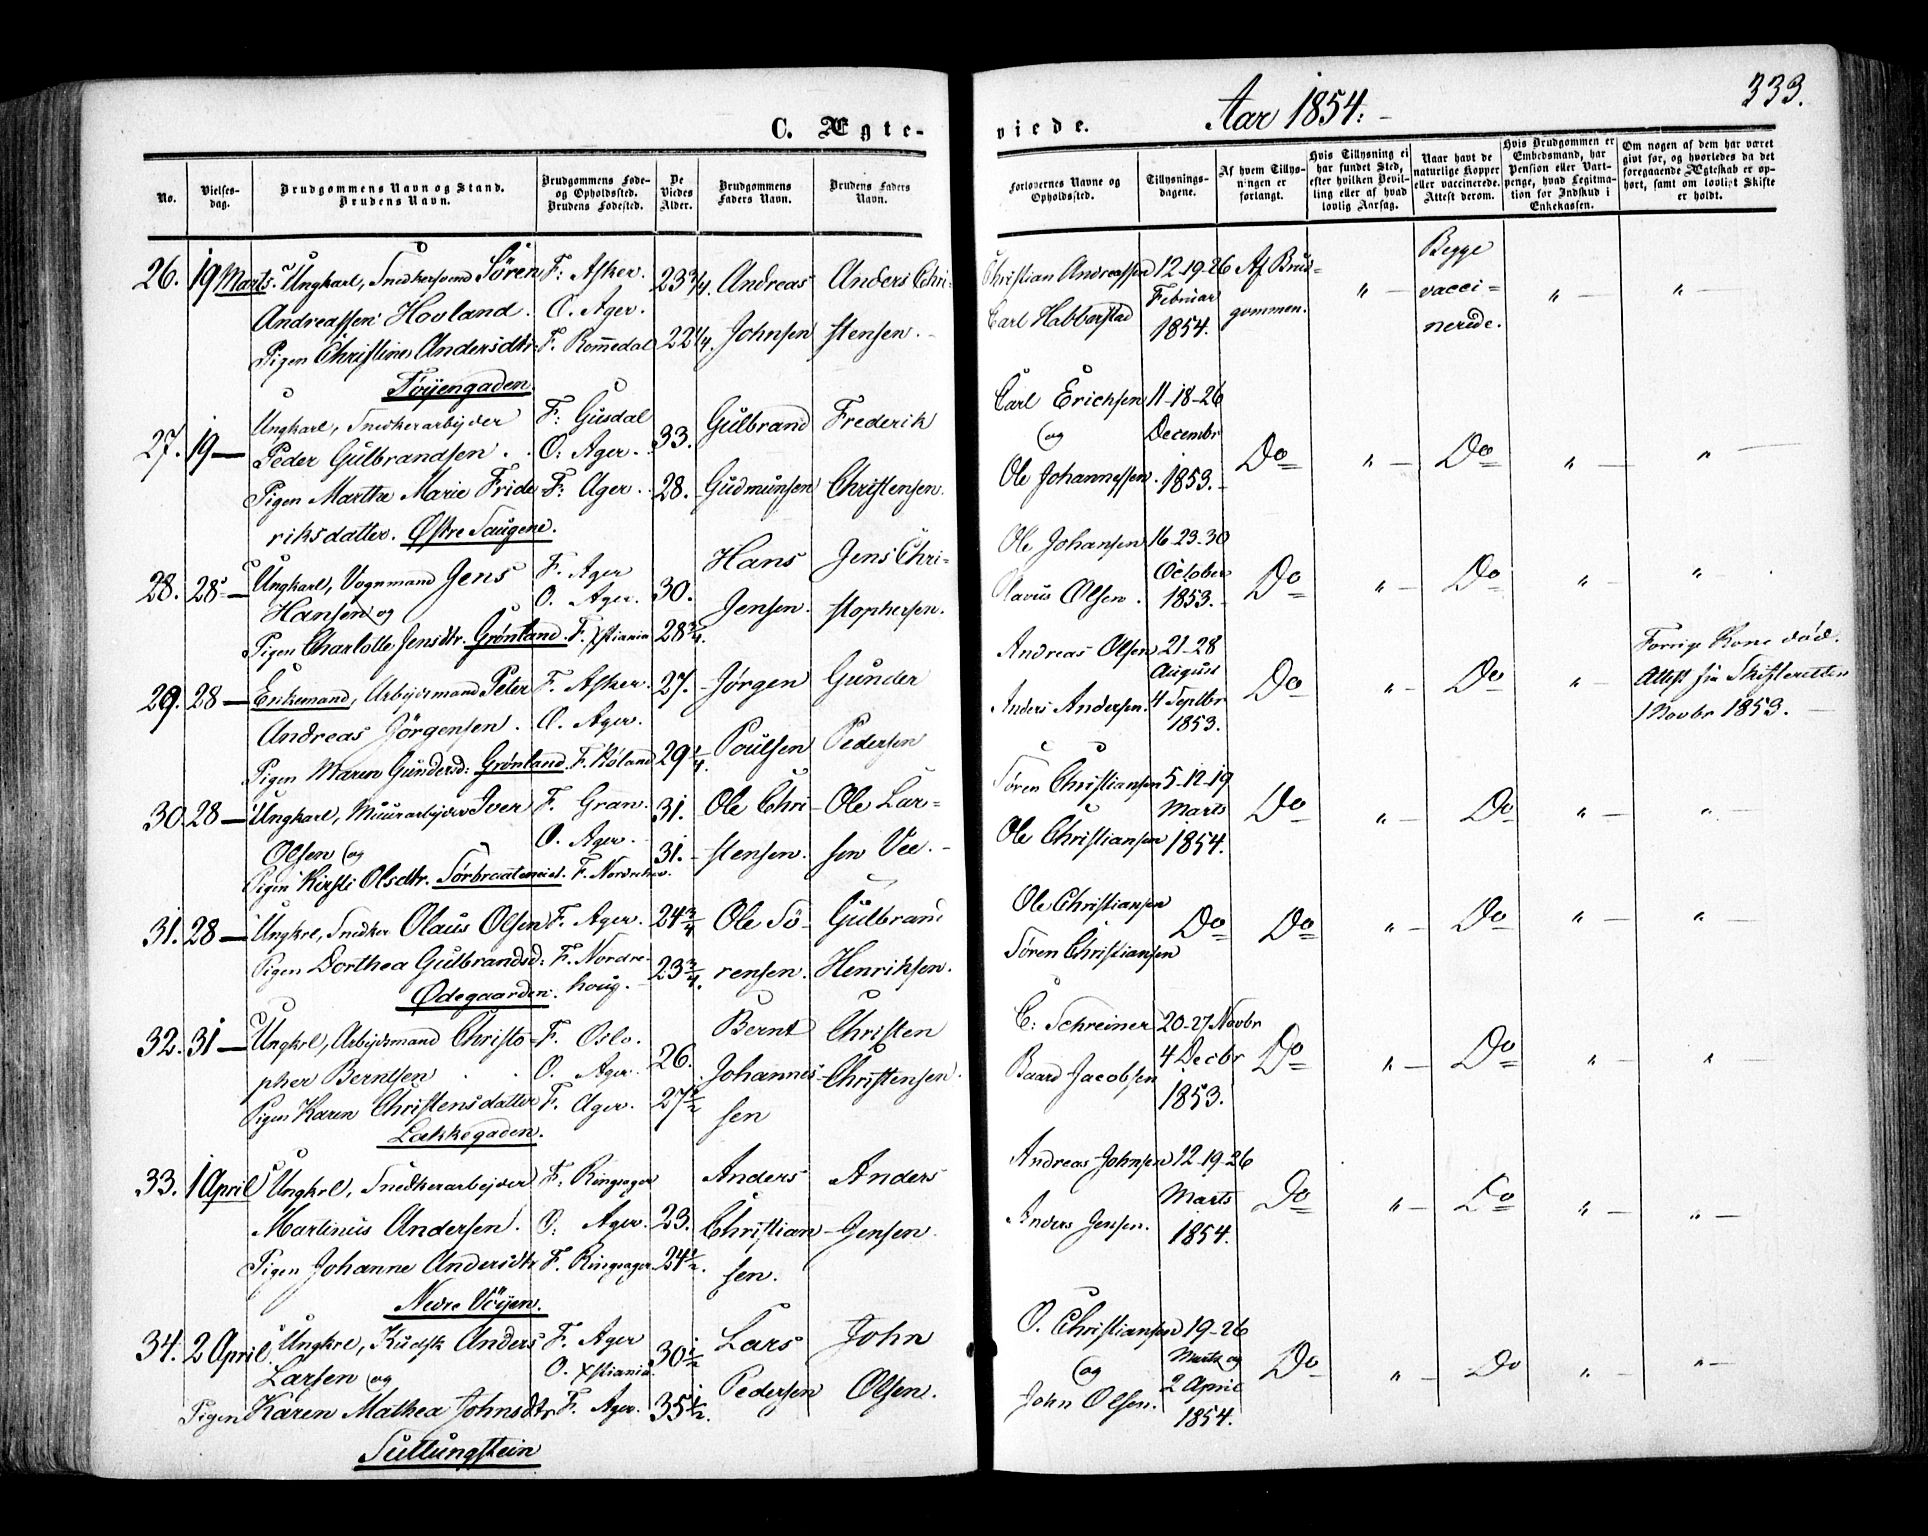 333.
C. Ægte-
viede.
Aar 1854.
No.
Vielses-
dag.
Brudgommens Navn og Stand.
Brudens Navn.
Brudgommens Føde-
og Opholdssted.
Brudens Fødested.
De
Viedes
Alder.
Brudgommens
Faders Navn.
Brudens Faders
Navn.
Forlovernes Navne og
Opholdssted.
Tillysnings-
dagene.
Af hvem Tillys-
ningen er
forlangt.
Hvis Tillysning ei
har fundet Sted,
efter hvilken Bevil-
ling eller af hvad
lovlig Aarsag.
Naar havt de
naturlige Kopper
eller vaccinerede.
Attest derom.
Hvis Brudgommen er
Embedsmand, har
Pension eller Vart-
penge, hvad Legitma-
tion for Indskud i
Enkekassen.
Om nogen af dem har været
gift før, og hvorledes da det
foregaaende Ægteskab er op-
hørt, samt om lovligt Skifte
er holdt.
26. 19 Marts. Ungkarl, Snedkersvend Sören F: Asker. 23 3/4. Andreas Anders Chri-
Andreassen Hovland. O. Ager.
Pigen Christine Andersdtr. F. Romedal 22 1/4. Johnsen stensen.
Töyengaden.
Christian Andreassen 12-19-26 Af Brud- " Begge " "
Carl Habberstad Februar gommen. vacci-
1854. nerede.
27. 19 — Ungkarl, Snedkerarbejder F: Gusdal 33. Gulbrand Frederik
Peder Gulbrandsen. O: Ager.
Pigen Marthe Marie Fride- F: Ager. 28. Gudmunsen Christensen.
riksdatter. Østre Saugene.
Carl Erichsen 11-18-26
og Decembr Do " Do " "
Ole Johannessen. 1853.
28. 28 — Ungkarl, Vognmand Jens F. Ager 30. Hans Jens Chri-
Hansen og O. Ager. Jensen. stophersen.
Pigen Charlotte Jensdtr. Grönland. F. Xstiania 28 3/4.
Ole Johansen 16-23-30
Olavus Olsen. October Do " Do " "
1853.
29. 28 — Enkemand, Arbejdsmand Peter F. Asker. 27. Jørgen Gunder
Andreas Jörgensen. O. Ager. Poulsen Pedersen
Pigen Maren Gundersd: Grönland. F. Höland 29 1/4.
Andreas Olsen 21-28 Forrige Kone död.
August Do " Do " Attest fra Skifteretten
Anders Andersen. 4 Septbr 1 Novbr 1853.
1853.
30. 28 — Ungkarl, Muurarbejder Iver F. Gran. 31. Ole Chri- Ole Lar-
Olsen og O. Ager. 31. stensen. sen Vee.
Pigen Kirsti Olsdtr. Törbraateneiet. F. Nordrehov.
Sören Christiansen 5-12-19
Marts Do " Do " "
Ole Christiansen 1854.
31. 28 — Ungkrl, Snedker Olaus Olsen F. Ager. 24 3/4 Ole Sö- Gulbrand
Pigen Dorthea Gulbrandsd: F. Nordre- 23 3/4. rensen. Henriksen.
Ødegaarden. houg.
Ole Christiansen
Do Do " Do " "
Sören Christiansen
32. 31 — Ungkrl, Arbejdsmand Christo- F. Oslo. 26. Bernt Christen
pher Berntsen O. Ager. Johannes- Christensen.
Pigen Karen Christensdatter F. Ager. 27 1/2 sen
Lakkegaden.
C: Schreiner 20-27 Novbr
4 Decbr Do " Do " "
Baard Jacobsen 1853.
33. 1 April Ungkrl, Snedkerarbejder F: Ringsager Anders Anders
Martinus Andersen. O: Ager. 23. Christian- Jensen.
Pigen Johanne Andersdtr F. Ringsager 24 1/2. sen.
Nedre Vöyen.
Andreas Johnsen 12-19-26
Marts Do " Do " "
Anders Jensen. 1854.
34. 2 April. Ungkrl, Kudsk Anders F. Ager 30 1/2 Lars John
Larsen og O. Xstiania. Pedersen Olsen.
Pigen Karen Mathea Johnsdtr F. Ager. 35 1/2.
Suttungstein
O. Christiansen 19-26
og Marts og Do " Do " "
John Olsen. 2 April
1854.